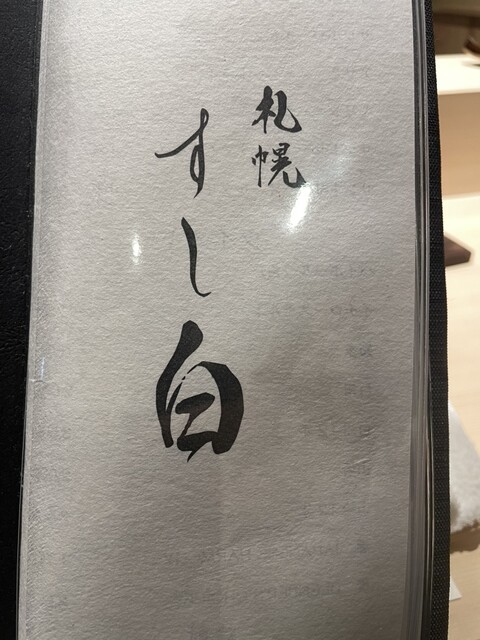 札幌
すし白